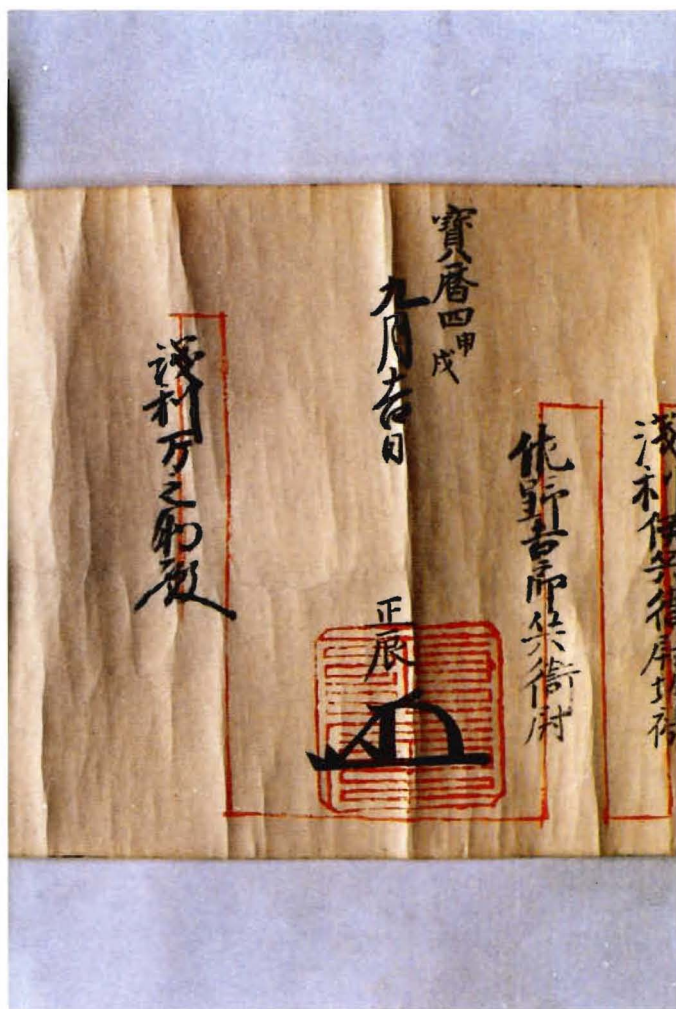 淺利伊兵衛尉均禄
佐野吉郎兵衛尉
寶暦四甲戌
九月吉日
正辰
淺利万之助殿